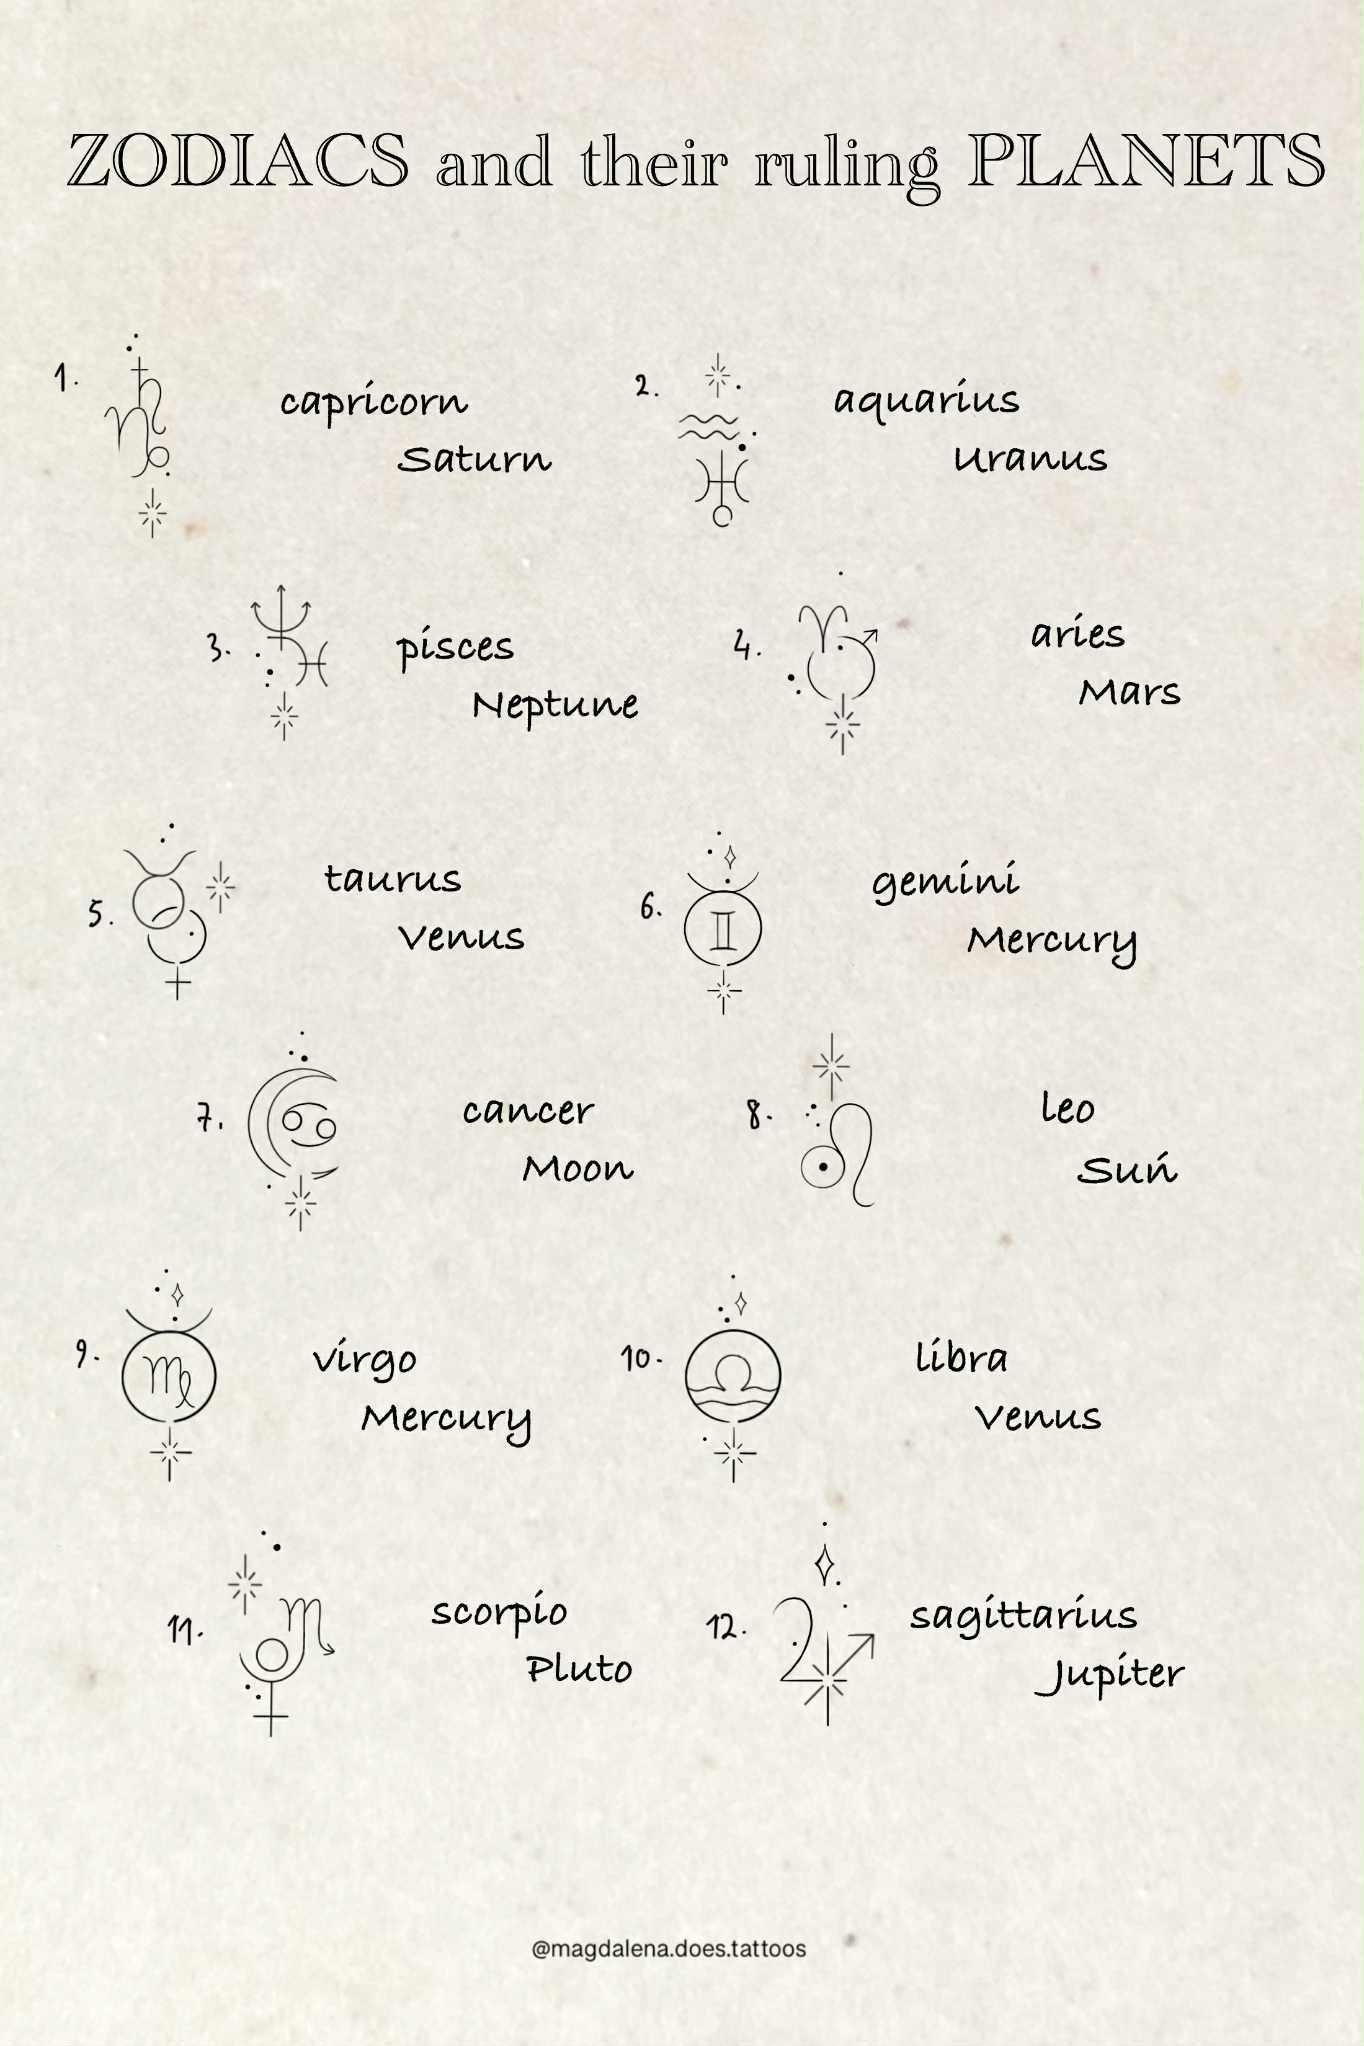 ZODIACS and their ruling PLANETS
1. capricorn
Saturn
2. aquarius
Uranus
3. pisces
Neptune
4. aries
Mars
5. taurus
Venus
6. gemini
Mercury
7. cancer
Moon
8. leo
Suń
9. virgo
Mercury
10. libra
Venus
11. scorpio
Pluto
12. sagittarius
Jupiter
@magdalena.does.tattoos